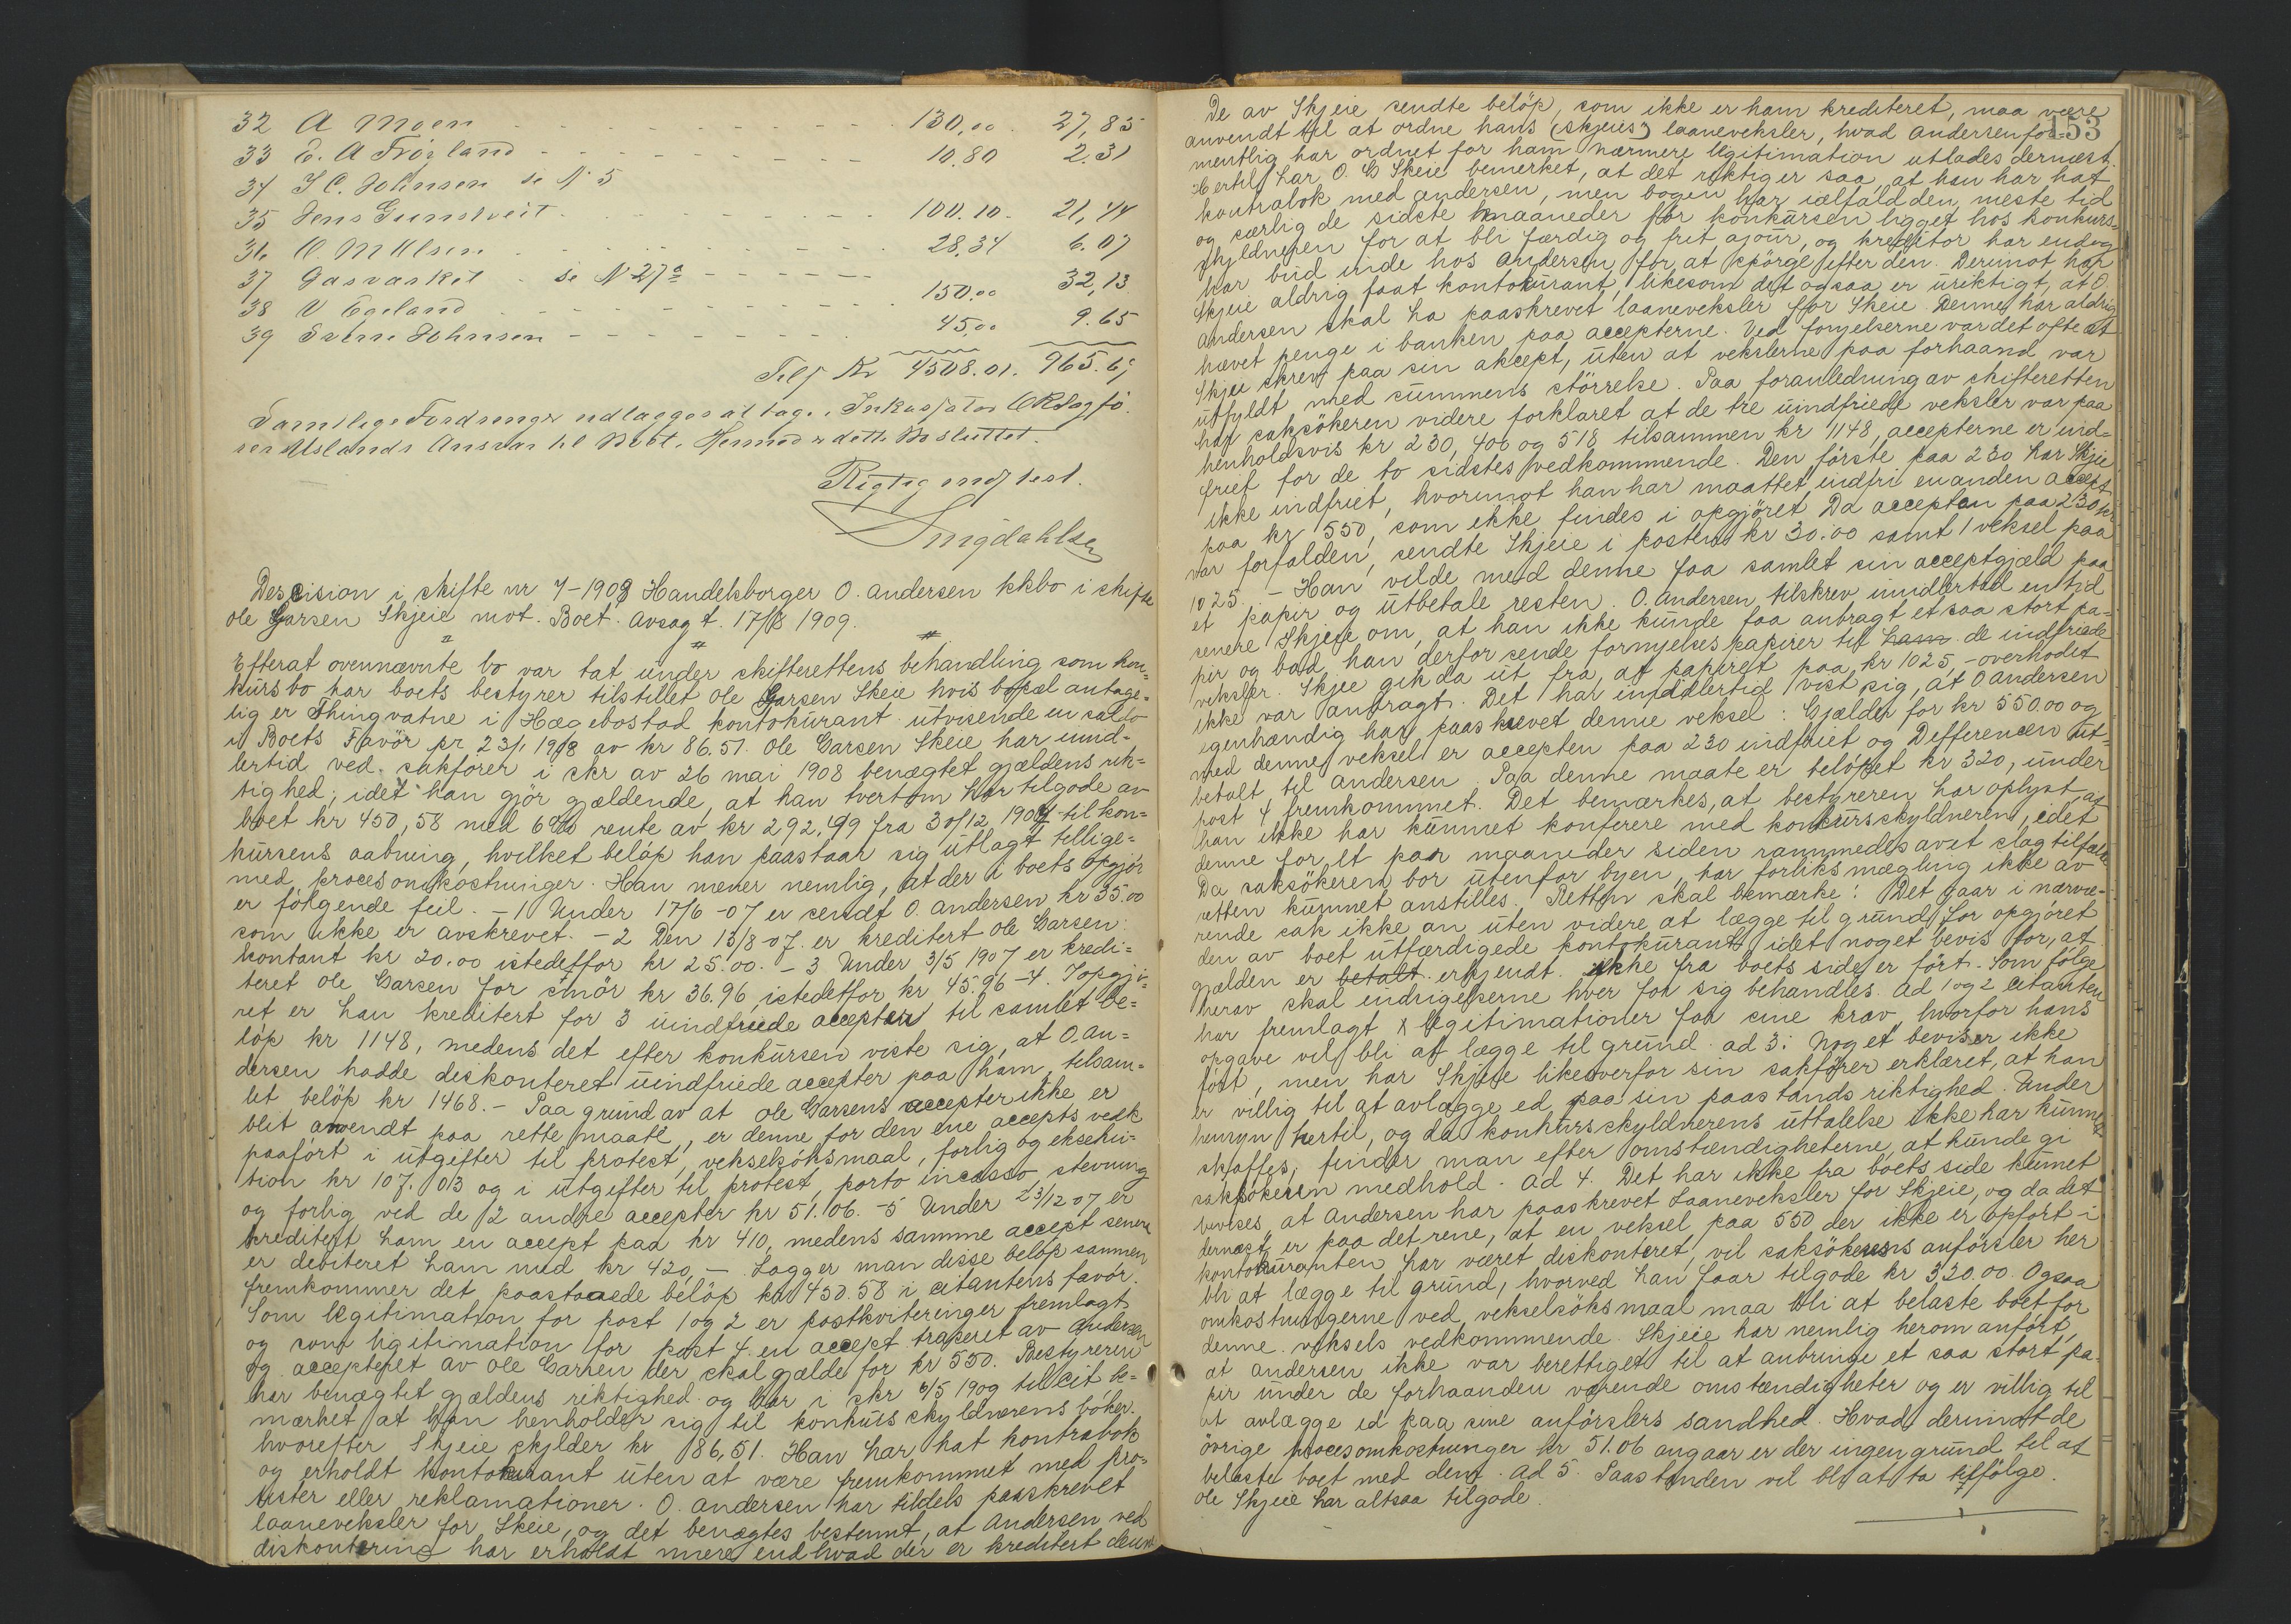 32 A Moen - - - - 130,00 27,85
33 E. A Fröyland - - - - 10.80 2.31
34 J C. Johnsen se N 5
35 Jens Gundveit - - - - 100.10 21,44
36 O. M Olsen - - - - 28,34 6.07
37 Gasværket - se N 27a - - - -
38 V Egeland - - - - 150.00 32,13
39 Svenn Johnsen - - - - 45,00 9.65
Tils Kr 4508.01. 965.69
Samtlige Fordringer udlægges at tage i Inkassator O K Sagfö-
rer Uslands Ansvar til Boet. Hermed er dette Bo sluttet.
Rigtig Udskrift best.
Smigdahlsen
Descision i skifte nr 7-1908 Handelsborger O. Andersen kkbo i skifte
Ole Garsen Skjeie mot. Boet. Avsagt. 17/8 1909.
Efterat ovennævnte bo var tat under skifterettens behandling som kon-
kursbo har boets bestyrer tilstillet Ole Garsen Skeie hvis bopæl antage-
lig er Thingvatne i Hægebostad kontokurant utvisende en saldo
i Boets Favör pr 23/1 1908 av kr 86.51. Ole Garsen Skeie har imid-
lertid ved. sakförer i skr av 26 mai 1908 benægtet gjældens rik-
tighed, idet han gjör gjældende, at han tvertom har tilgode av
boet kr 450,58 med 6% rente av kr 292,49 fra 30/12 1907 til kon-
kursens aabning, hvilket belöp han paastaar sig utlagt tillige-
med procesomkostninger. Han mener nemlig, at der i boets opgjör
er fölgende feil. - 1 Under 17/6 -07 er sendt O. Andersen kr 35.00
som ikke er avskrevet. - 2 Den 13/8 -07. er kreditert Ole Garsen:
kontant kr 20.00 istedetfor kr 25.00. - 3 Under 3/5 1907 er kredi-
teret Ole Garsen for smör kr 36.96 istedetfor kr 45.96 - 4. I opgjö-
ret er han kreditert for 3 uindfriede accepter til samlet be-
löp kr 1148, medens det efter konkursen viste sig, at O. An-
dersen hadde diskonteret uindfriede accepter paa ham, tilsam-
let belöp kr 1468.- Paa grund av at Ole Garsens accepter ikke er
blit anvendt paa rette maate, er denne for den ene accepts vedk
paafört i utgifter til protest, vekselsöksmaal, forlig og eksehu-
tion kr 107.03 og i utgifter til protest, porto incasso, stevning
og forlig ved de 2 andre accepter kr 51.06. - 5 Under 23/12 07 er
kreditert ham en accept paa kr 410, medens samme accept senere
er debiteret ham med kr 420,- Lægger man disse belöp sammen
fremkommer det paastaaede belöp kr 450.58 i citantens favör.
Som legitimation for post 1 og 2 er postkviteringer fremlagt
og som legitimation for post 4 en accept trasseret av Andersen
og accepteret av Ole Garsen der skal gjælde for kr 550. Bestyreren
har benægtet gjældens riktighed og har i skr 6/5 1909 til cit be-
mærket at han henholder sig til konkursskyldnerens böker.
hvorefter Skjeie skylder kr 86,51. Han har hat kontrabok
og erholdt kontokurant uten at være fremkommet med pro-
tester eller reklamationer. O. Andersen har tildels paaskrevet
laaneveksler for Skeie, og det benægtes bestemt, at Andersen ved
diskontering har erholdt mere end hvad der er kreditert denne
153
De av Skjeie sendte belöp, som ikke er ham krediteret, maa være
anvendt til at ordne hans (skjeies) laaneveksler, hvad Andersen for-
mentlig har ordnet for ham Nærmere legitimation utlades dernæst.
Hertil har O. G Skeie bemerket, at det riktig er saa, at han har hat
kontrabok med Andersen, men bogen har ialfald den meste tid
og særlig de sidste maaneder för konkursen ligget hos konkurs-
skyldneren for at bli færdig og frit ajour, og kreditor har endog
har bud inde hos Andersen for at spörge efter den. Derimot har
Skjeie aldrig faat kontokurant, likesom det ogsaa er uriktigt, at O.
Andersen skal ha paaskrevet laaneveksler for Skeie Denne har aldrig
hævet penge i banken paa accepterne. Ved fornyelserne var det ofte at
Skjeie skrev paa sin aksept, uten at vekslerne paa forhaand var
utfyldt med summens störrelse. Paa foranledning av skifteretten
har saksökeren videre forklaret at de tre uindfriede veksler var paa
henholdsvis kr 230, 400 og 518 tilsammen kr 1148, accepterne er ind-
friet for de to sidstes vedkommende. Den förste paa 230 har Skjeie
ikke indfriet, hvorimot han har maattet indfri en anden accept
paa kr 550, som ikke findes i opgjöret Da accepten paa 230 kr
var forfalden, sendte Skjeie i posten kr 30.00 samt 1 veksel paa
1025. - Han vilde med denne faa samlet sin acceptgjæld paa
et papir og utbetale resten. O. Andersen tilskrev imidlertid en tid
senere Skjeie om, at han ikke kunde faa anbragt et saa stort pa-
pir og bad han derfor sende fornyelsespapirer til ham de indfriede
veksler. Skjeie gik da ut fra, at papiret paa kr 1025,- overhodet
ikke var anbragt. Det har imidlertid vist sig, at O Andersen
egenhændig har paaskrevet denne veksel: Gjælder for kr 550.00 og
med denne veksel er accepten paa 230 indfriet og Differencen ut-
betalt til Andersen. Paa denne maate er belöpet kr 320, under
post 4 fremkommet. Det bemærkes, at bestyreren har oplyst at
han ikke har kunnet konferere med konkursskyldneren, idet
denne for et par maaneder siden rammedes av et slagtilfælde
Da saksökeren bor utenfor byen, har forliksmægling ikke av
retten kunnet anstilles. Retten skal bemærke: Det gaar i nærvæ-
rende sak ikke an uten videre at lægge til grund for opgjöret
den av boet utfærdigede kontokurant, idet noget bevis for, at
gjælden er betalt erkjendt. ikke fra boets side er fört. Som fölge
herav skal endrigelserne hver for sig behandles. ad 1 og 2 citanten
har fremlagt legitimationer for sine krav hvorfor hans
opgave vil bli at lægge til grund. ad 3: Noget bevis er ikke
fört, men har Skjeie likeoverfor sin sakförer erklæret, at han
er villig til at avlægge ed paa sin paastands riktighed. Under
hensyn hertil, og da konkursskyldnerens uttalelse ikke har kunnet
skaffes, finder man efter omstændigheterne at kunde gi
saksökeren medhold. Ad 4. Det har ikke fra boets side kunnet
bevises, at Andersen har paaskrevet Laaneveksler for Skjeie, og da det
dernæst er paa det rene, at en veksel paa 550 der ikke er opfört i
kontokuranten har været diskonteret, vil saksökerens anförsler her
bli at lægge til grund, hvorved han faar tilgode kr 320.00. Ogsaa
omkostningerne ved vekselsöksmaal maa bli at belaste boet for
denne veksels vedkommende. Skjeie har nemlig herom anfört,
at Andersen ikke var berettiget til at anbringe et saa stort pa-
pir under de forhaanden værende omstændigheter og er villig til
at avlægge ed paa sine anförslers sandhed. Hvad derimot de
övrige procesomkostninger kr 51.06 angaar er der ingen grund til at
belaste boet med dem. Ad 5. Paastanden vil bli at ta tilfölge.
Ole Skjeie har altsaa tilgode.